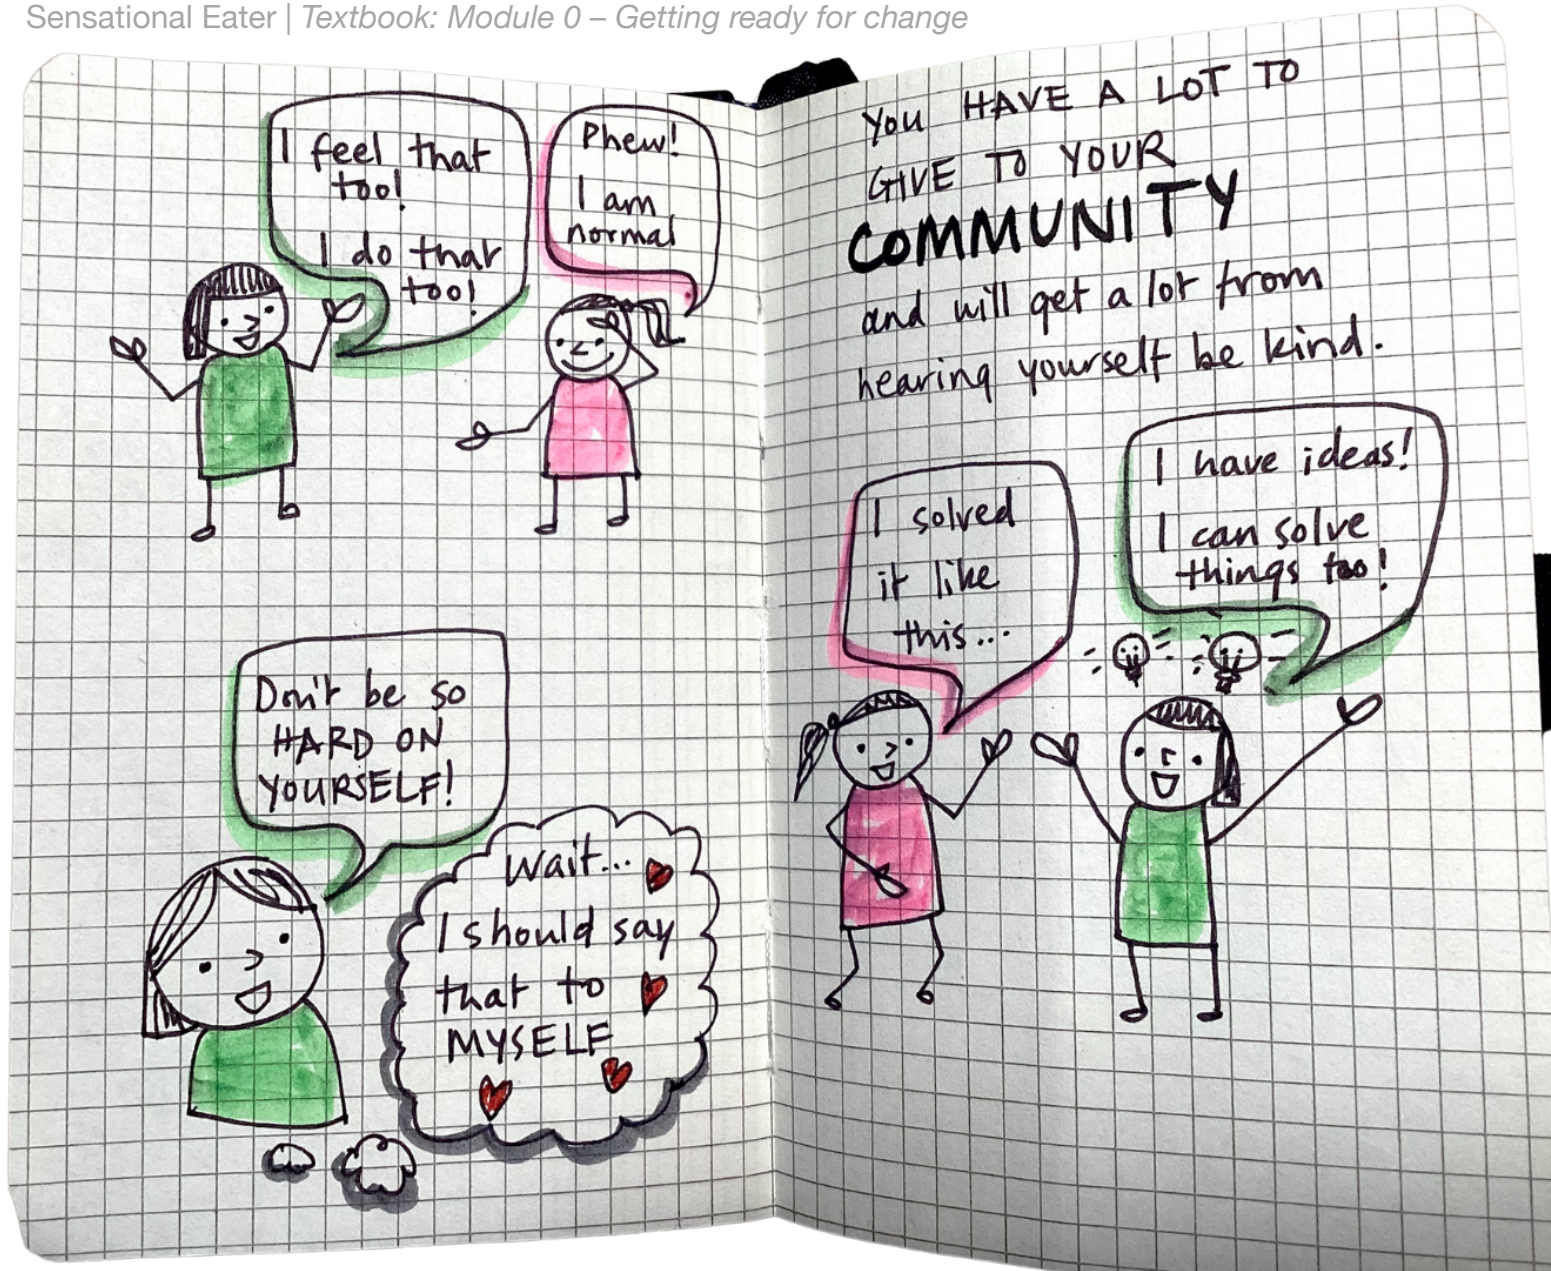 Sensational Eater | Textbook: Module 0 – Getting ready for change
I feel that
too!
I do that
too!
Phew!
I am
normal
Don't be so
HARD ON
YOURSELF!
Wait...
I should say
that to
MYSELF
YOU HAVE A LOT TO
GIVE TO YOUR
COMMUNITY
and will get a lot from
hearing yourself be kind.
I solved
it like
this...
I have ideas!
I can solve
things too!